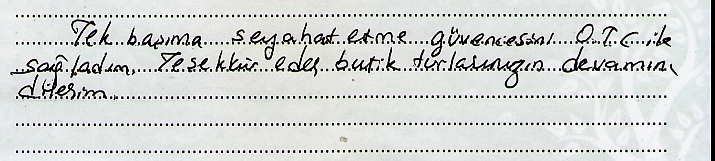 Tek başıma seyahat etme güvencesini O.T.C ile
sağladım. Teşekkür eder, butik turlarınızın devamını
dilerim.